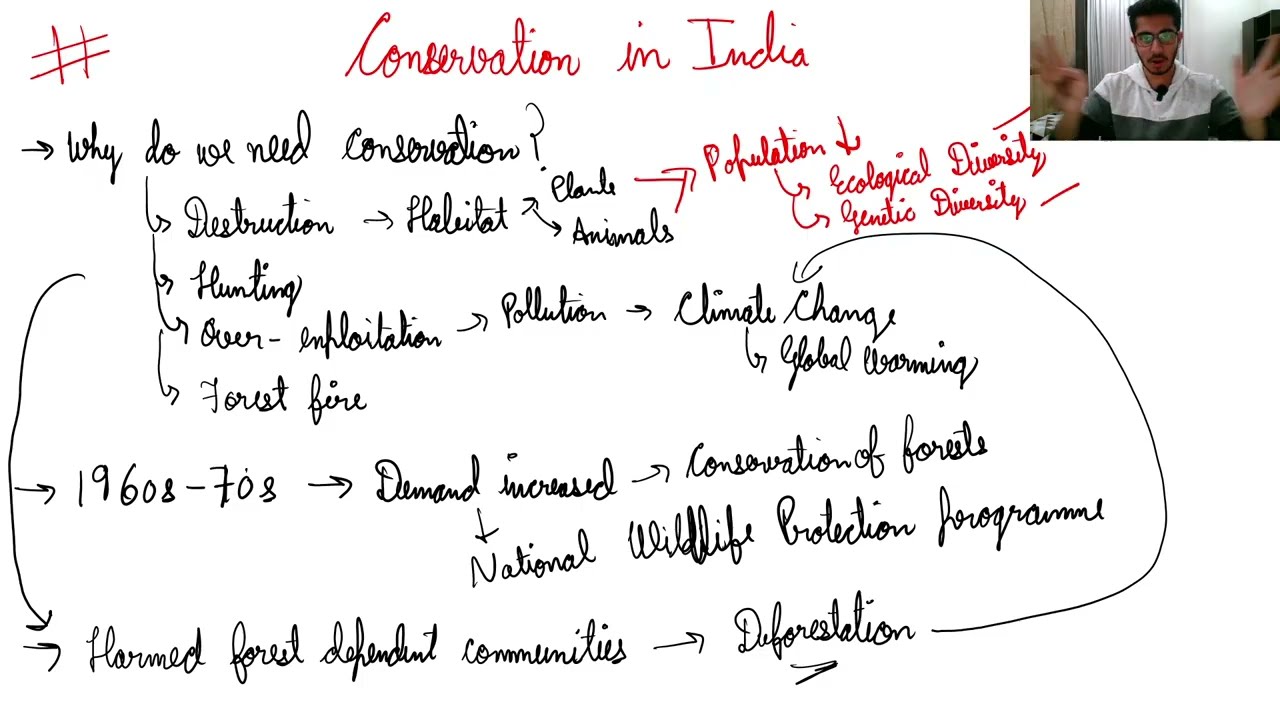 # Conservation in India
→ Why do we need conservation?
↳ Destruction → Habitat → Plants
→ Animals
→ Population ↓
↳ Ecological Diversity
↳ Genetic Diversity
↳ Hunting
↳ Over-exploitation → Pollution → Climate Change
↳ Global Warming
↳ Forest fire
→ 1960s-70s → Demand increased → Conservation of forests
↓
National Wildlife Protection programme
→ Harmed forest dependent communities → Deforestation